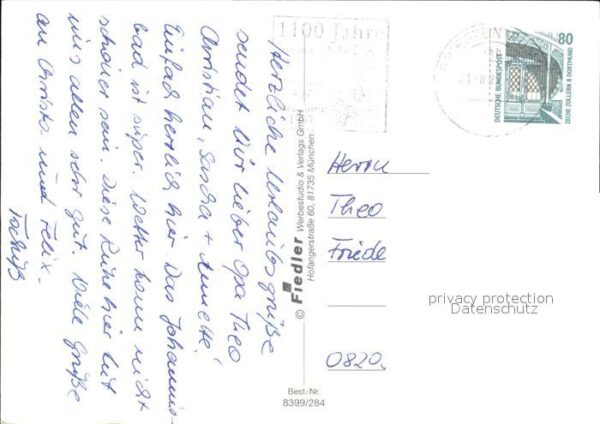 Herzliche Urlaubsgrüße
sendet Dir lieber Opa Theo
Christian, Sascha + Annette!
Einfach herrlich hier. Das Johannis-
bad ist super. Wetter kann nicht
schöner sein. Diese Ruhe hier tut
uns allen sehr gut. Viele Grüße
an Christa und Felix.
Tschüß
© Fiedler Werbestudio & Verlags GmbH
Hofangerstraße 60, 81735 München
Best.-Nr.
8399/284
1100 Jahre
80
DEUTSCHE BUNDESPOST
ZECHE ZOLLERN II DORTMUND
Herrn
Theo
Friede
0820.
privacy protection
Datenschutz